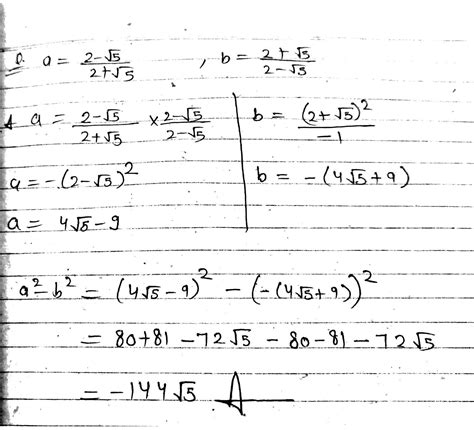 Q. a = (2-√5)/(2+√5) , b = (2+√5)/(2-√5)
A a = (2-√5)/(2+√5) × (2-√5)/(2-√5)
a = -(2-√5)²
a = 4√5-9
b = (2+√5)²/-1
b = -(4√5+9)
a²-b² = (4√5-9)² - (-(4√5+9))²
= 80+81-72√5-80-81-72√5
= -144√5 A